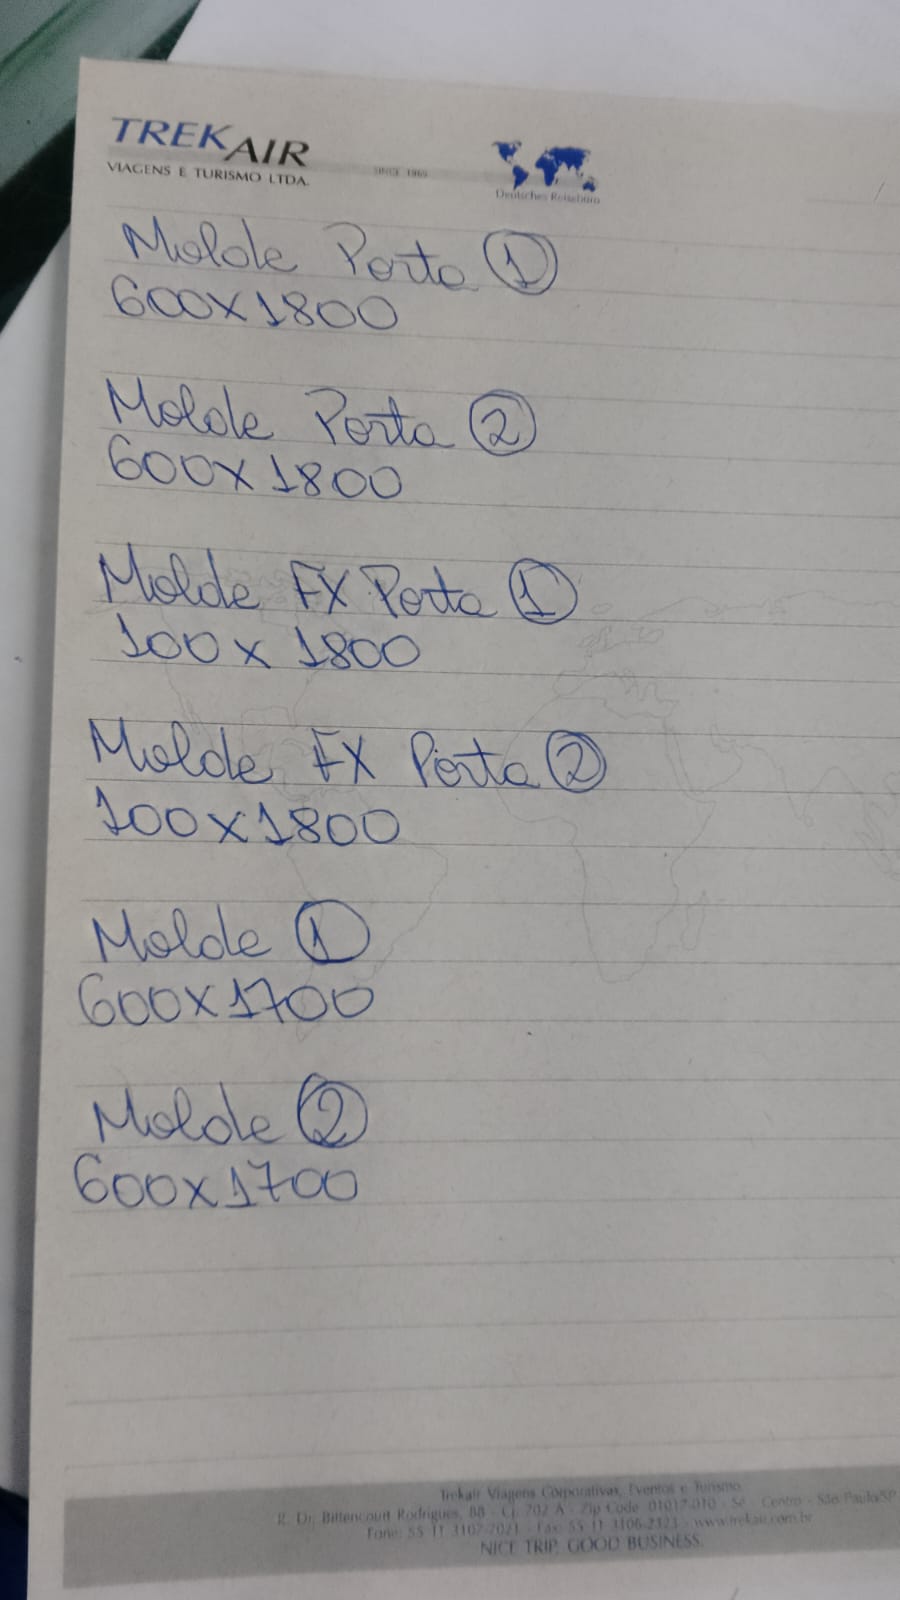 TREKAIR
VIAGENS E TURISMO LTDA.
SINCE 1969
Deutsches Reisebüro
Molde Porta 1
600x1800
Molde Porta 2
600x1800
Molde FX Porta 1
100x1800
Molde FX Porta 2
100x1800
Molde 1
600x1700
Molde 2
600x1700
Trekair Viagens Corporativas, Eventos e Turismo
R. Dr. Bittencourt Rodrigues, 88 - Cj. 702 A - Zip Code 01017-010 - Sé - Centro - São Paulo/SP
Fone: 55 11 3107-7021 - Fax: 55 11 3106-2323 - www.trekair.com.br
NICE TRIP, GOOD BUSINESS.